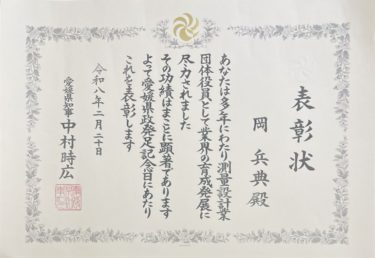 表彰状
岡兵典殿
あなたは多年にわたり測量設計業
団体役員として業界の育成発展に
尽力されました
その功績はまことに顕著であります
よって愛媛県政発足記念日にあたり
これを表彰します
令和八年二月二十日
愛媛県知事 中村時広